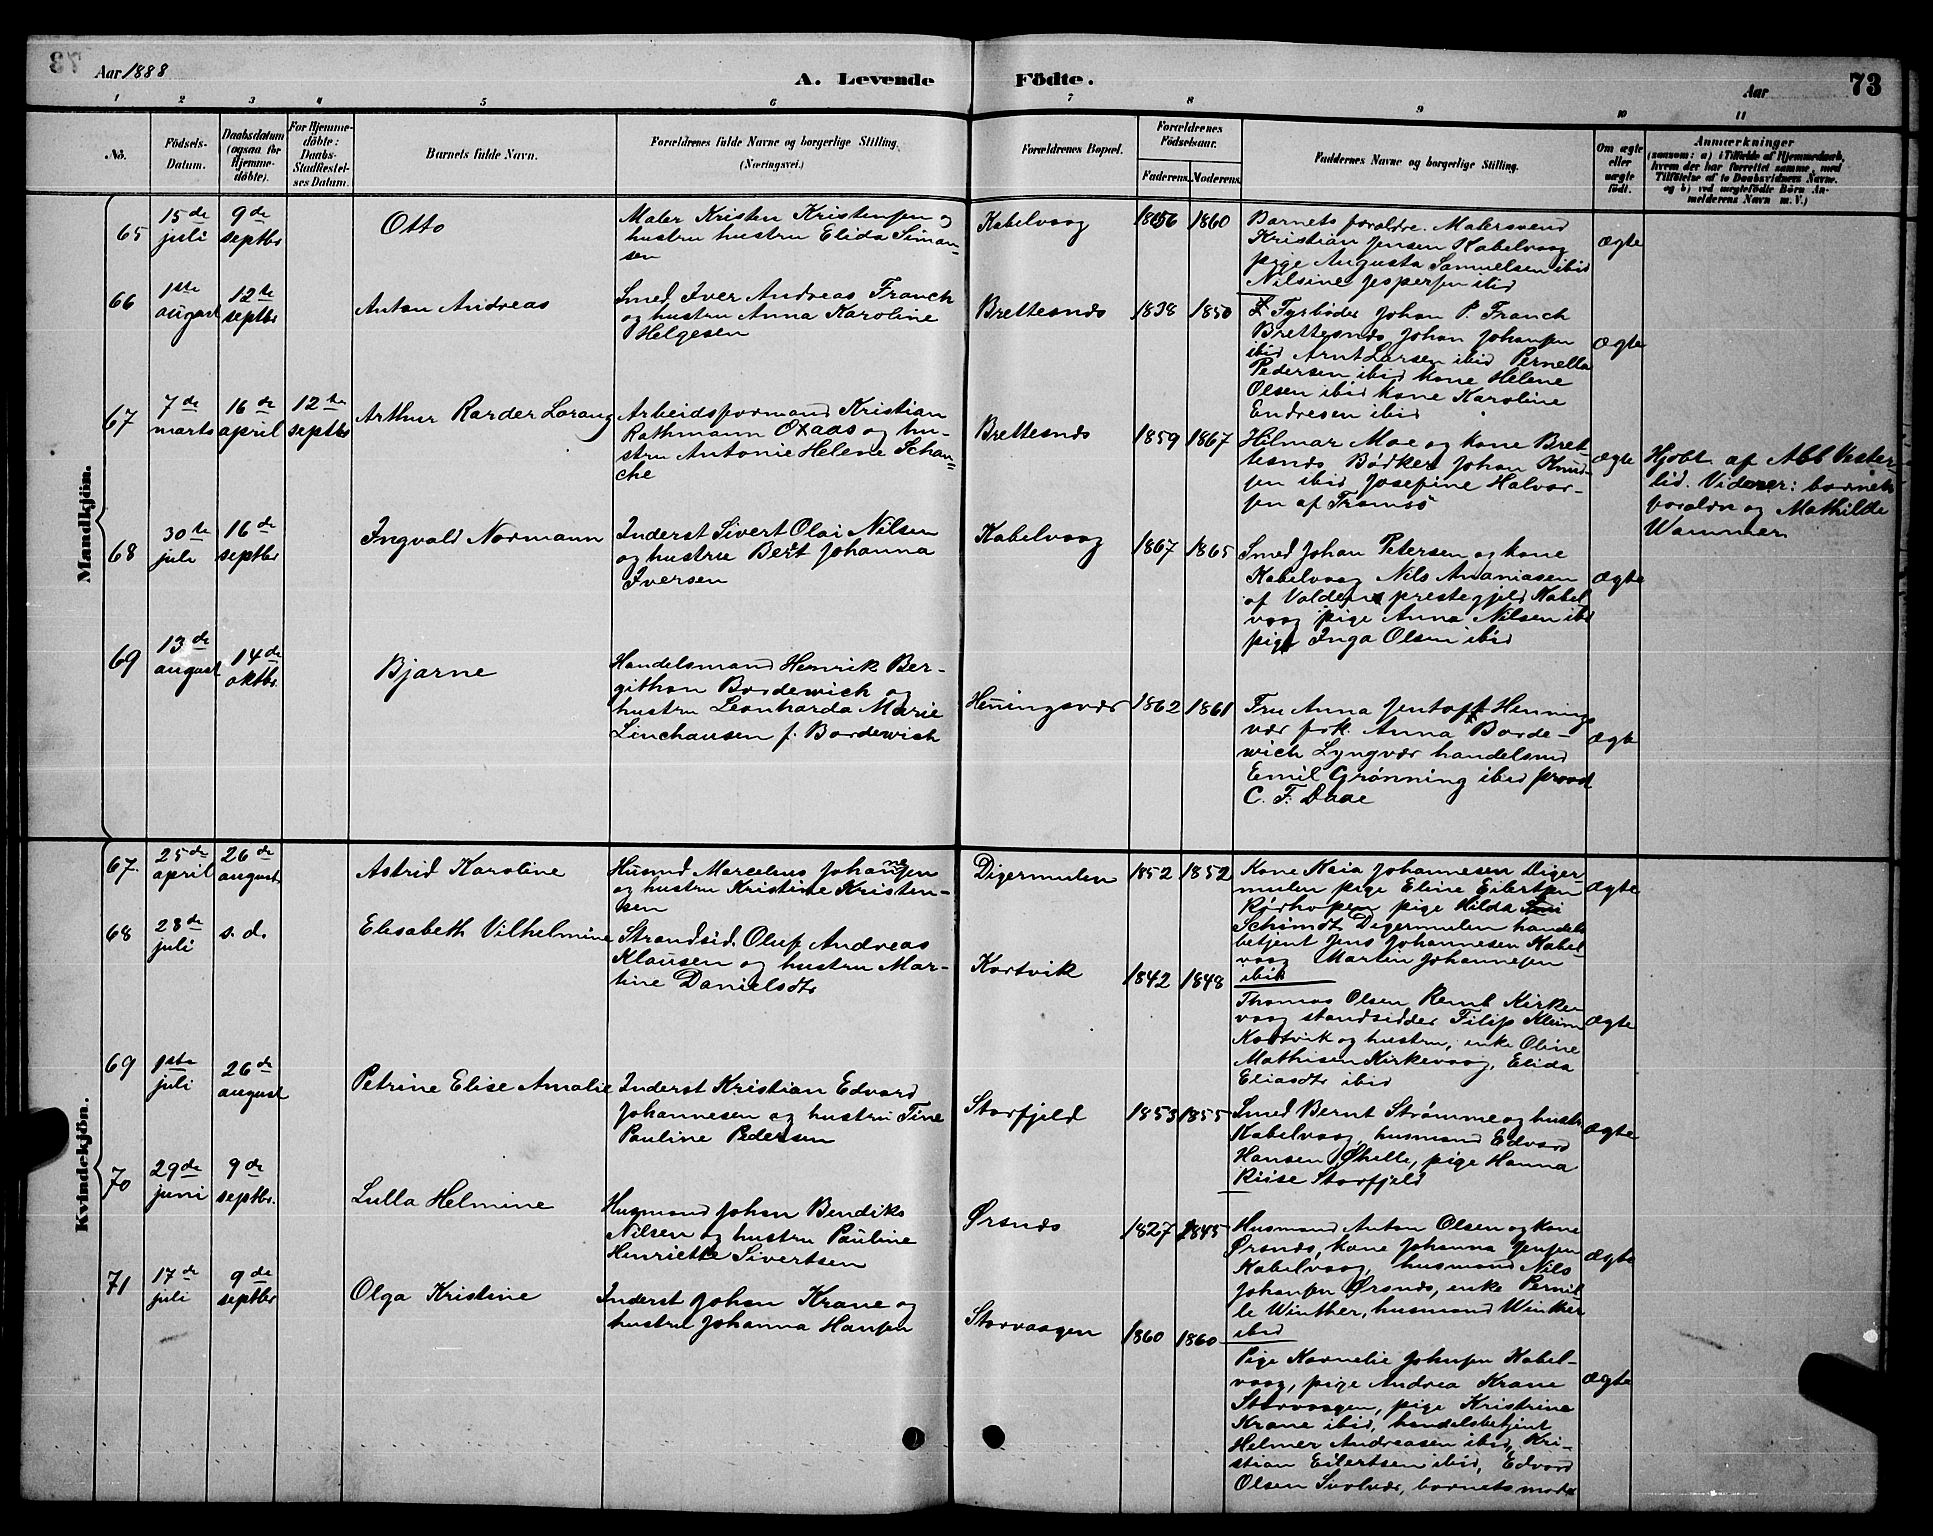 73
Aar 1888
A. Levende
Födte.
Aar
73
1 2 3 4 5 6 7 8 9 10 11
No.
Födsels-
Datum.
Daabsdatum
(ogsaa for
Hjemme-
döbte).
For Hjemme-
döbte:
Daabs-
Stadfæstel-
ses Datum.
Barnets fulde Navn.
Forældrenes fulde Navne og borgerlige Stilling
(Næringsvei.)
Forældrenes Bopæl.
Forældrenes
Födselsaar.
Faderens.
Moderens.
Faddernes Navne og borgerlige Stilling.
Om ægte
eller
uægte
födt.
Anmærkninger
(saasom: a) i Tilfælde af Hjemmedaab,
hvem der har forrettet samme, med
Tilföielse af to Daabsvidners Navne.
og b) ved uægtefödte Börn An-
melderens Navn m. V.)
Mandkjön.
65
15de
juli
9de
septbr
Otto
Maler Kristen Kristensen og
hustru hustru Elida Simon-
sen
Kabelvaag
1856
1860
Barnets foraldre. Malersvend
Kristian Jensen Kabelvaag
pige Augusta Samuelsen ibid
Nilsine Jespersen ibid
Ægte
66
1ste
august
12te
septbr
Anton Andreas
Smed Iver Andreas Franck
og hustru Anna Karoline
Helgesen
Brettesnes
1838
1850
Fyrbøder Johan P. Franck
Brettesnes Johan Johansen
ibid Arnt Larsen ibid Pernella
Pedersen ibid kone Helene
Olsen ibid kone Karoline
Endresen ibid
Ægte
67
7de
marts
16de
april
12te
septbr
Arthur Rarder Lorang
Arbeidsformand Kristian
Rathmann Oxaas og hu-
stru Antonie Helene Schan-
che
Brettesnes
1859
1867
Hilmar Moe og kone Bret-
tesnes Bødker Johan Knud-
sen ibid Josefine Halvor-
sen af Tromsø
Ægte
Hjdbt af Abb Vester-
lid. Vidner: barnets
foraldre og Mathilde
Wammer
68
30te
juli
16de
septbr
Ingvald Normann
Inderst Sivert Olai Nilsen
og hustru Berit Johanna
Iversen
Kabelvaag
1867
1865
Smed Johan Petersen og kone
Kabelvaag Nils Ananiasen
af Volden prestegjeld Kabel-
vaag pige Anna Nilsen ibid
pige Inga Olsen ibid
Ægte
69
13de
august
14de
oktbr.
Bjarne
Handelsmand Henrik Ber-
githon Bordewich og
hustru Leonharda Marie
Linchausen f. Bordewich
Henningsvær
1862
1861
Fru Anna Jentoft Hennings
vær frk. Anna Borde-
wich Lyngvær handelsmd
Emil Grønning ibid provst
C. F. Daae
Ægte
Kvindekjön.
67.
25de
april
26de
august
Astrid Karoline
Husmd Marcelius Johannesen
og hustru Kristine Kristen-
sen
Digermulen
1852
1852
Kone Kaia Johannesen Diger-
mulen pige Eline Eilertsen
Rørhopen pige Hilda
Schimdt Digermulen handels
betjent Jens Johannesen Kabel-
vaag Marten Johannesen
ibid
Ægte
68
28de
juli
s. d.
Elisabeth Vilhelmine
Strandsid. Oluf Andreas
Klausen og hustru Mar-
tine Danielsdtr
Kortvik
1842
1848
Thomas Olsen Remt Kirke-
vaag standsidder Filip Kleim
Kortvik og hustru, enke Oline
Mathisen Kirkevaag, Elida
Eliasdtr ibid
Ægte
69
1ste
juli
26de
august
Petrine Elise Amalie
Inderst Kristian Edvard
Johannesen og hustru Tine
Pauline Pedersen
Storfjeld
1853
1855
Smed Bernt Strømme og hustr
Kabelvaag, husmand Edvard
Hansen Ørhelle, pige Hanna
Riise Storfjeld
Ægte
70
29de
juni
9de
septbr.
Lulla Helmine
Husmand Johan Bendiks
Nilsen og hustru Pauline
Henriette Sivertsen
Ørsnes
1827
1845
Husmand Anton Olsen og kone
Ørsnes, kone Johanna Jensen
Kabelvaag, husmand Nils
Johansen Ørsnes, enke Pernil-
le Winther, husmand Winther
ibid
Ægte
71
17de
juli
9de
septbr
Olga Kristine
Inderst Johan Krane og
hustru Johanna Hansen
Storvaagen
1860
1860
Pige Kornelie Johnsen Kabel-
vaag, pige Andrea Krane
Storvaagen, pige Kristine
Krane ibid, handelsbetjent
Helmer Andreasen ibid, Kri-
stian Eilertsen ibid, Edvard
Olsen Svolvær, barnets moder
Ægte